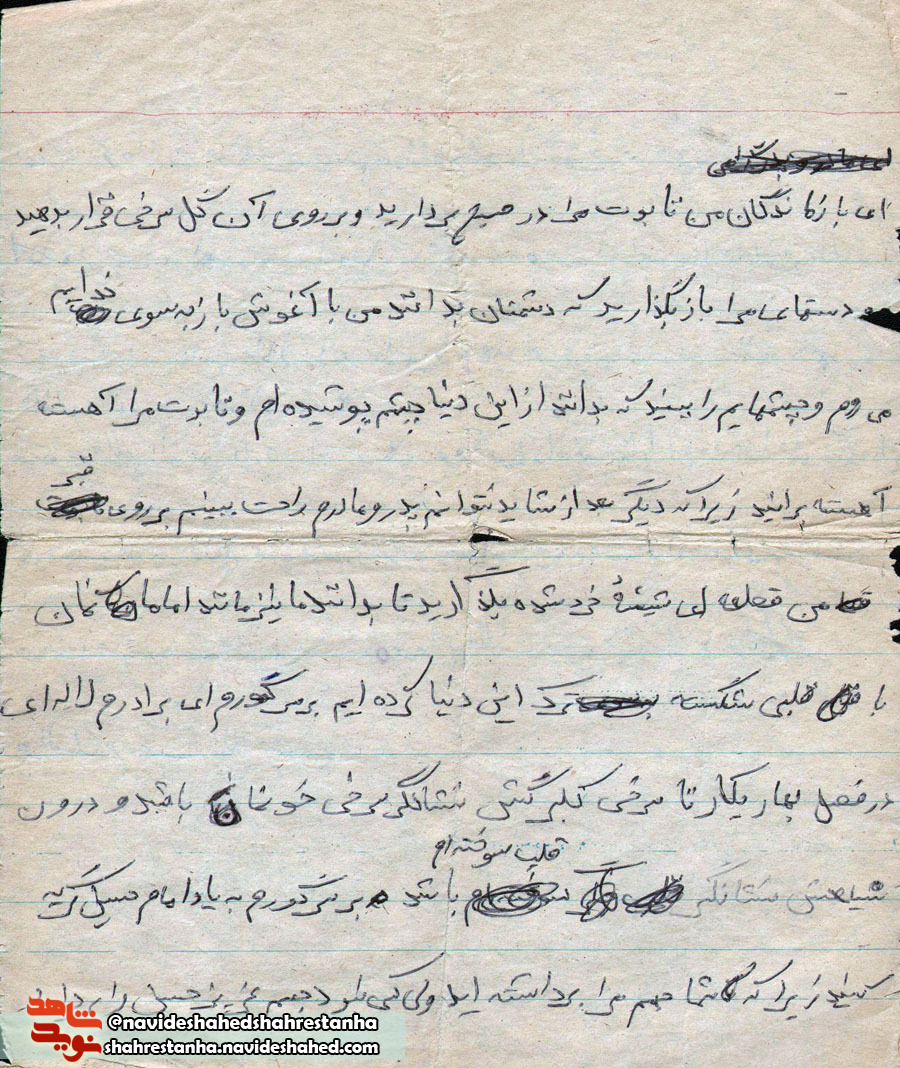 ای بازماندگان من تابوت مرا در صبح بردارید و بر روی آن گل سرخی قرار بدهید
و دستهای مرا باز بگذارید که دشمنان بدانند من با آغوش باز به سوی خدایم
می روم و چشمهایم را ببندید که بدانند از این دنیا چشم پوشیده ام و تابوت مرا آهسته
آهسته برانید زیرا که دیگر بعد از شاید نتوانم پدر و مادرم راحت ببینم بر روی قبر
من قطعه ای شیشهٔ خرد شده بگذارید تا بدانند ما نیز مانند امامانمان
با قلبی شکسته ترک این دنیا کرده ایم بر سر گورم ای برادرم لاله ای
در فصل بهار بکار تا سرخی گلبرگش نشانگر سرخی خونمان باشد و درون
سیاهش نشانگر قلب سوخته ام باشد بر سر گورم به یاد امام حسین گریه
کنید زیرا که شما جسم مرا برداشته اید ولی کی بود جسم عزیز حسین را بردارد
شاهد
نوید
@navideshahedshahrestanha
shahrestanha.navideshahed.com